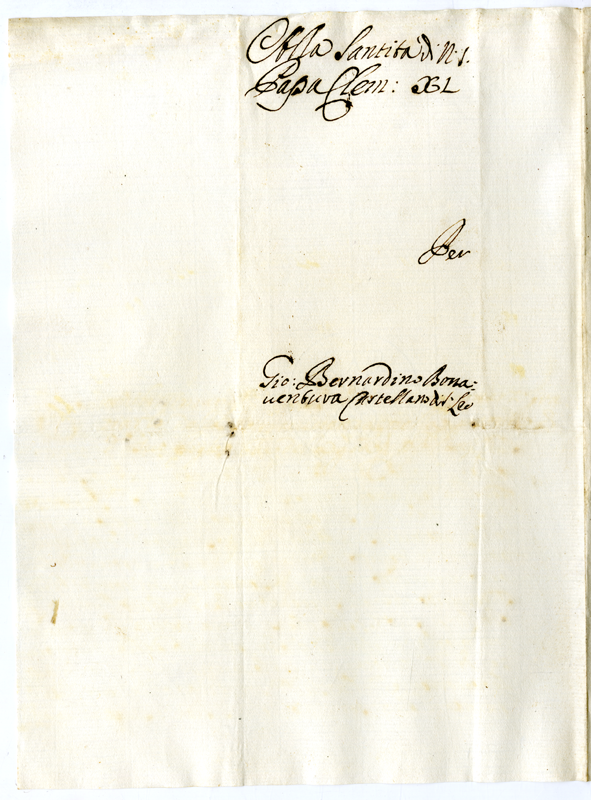 Alla Santità di N. S.
Papa Clem: XI
Per
Gio: Bernardino Bona=
uentura Castellano di S. Leo